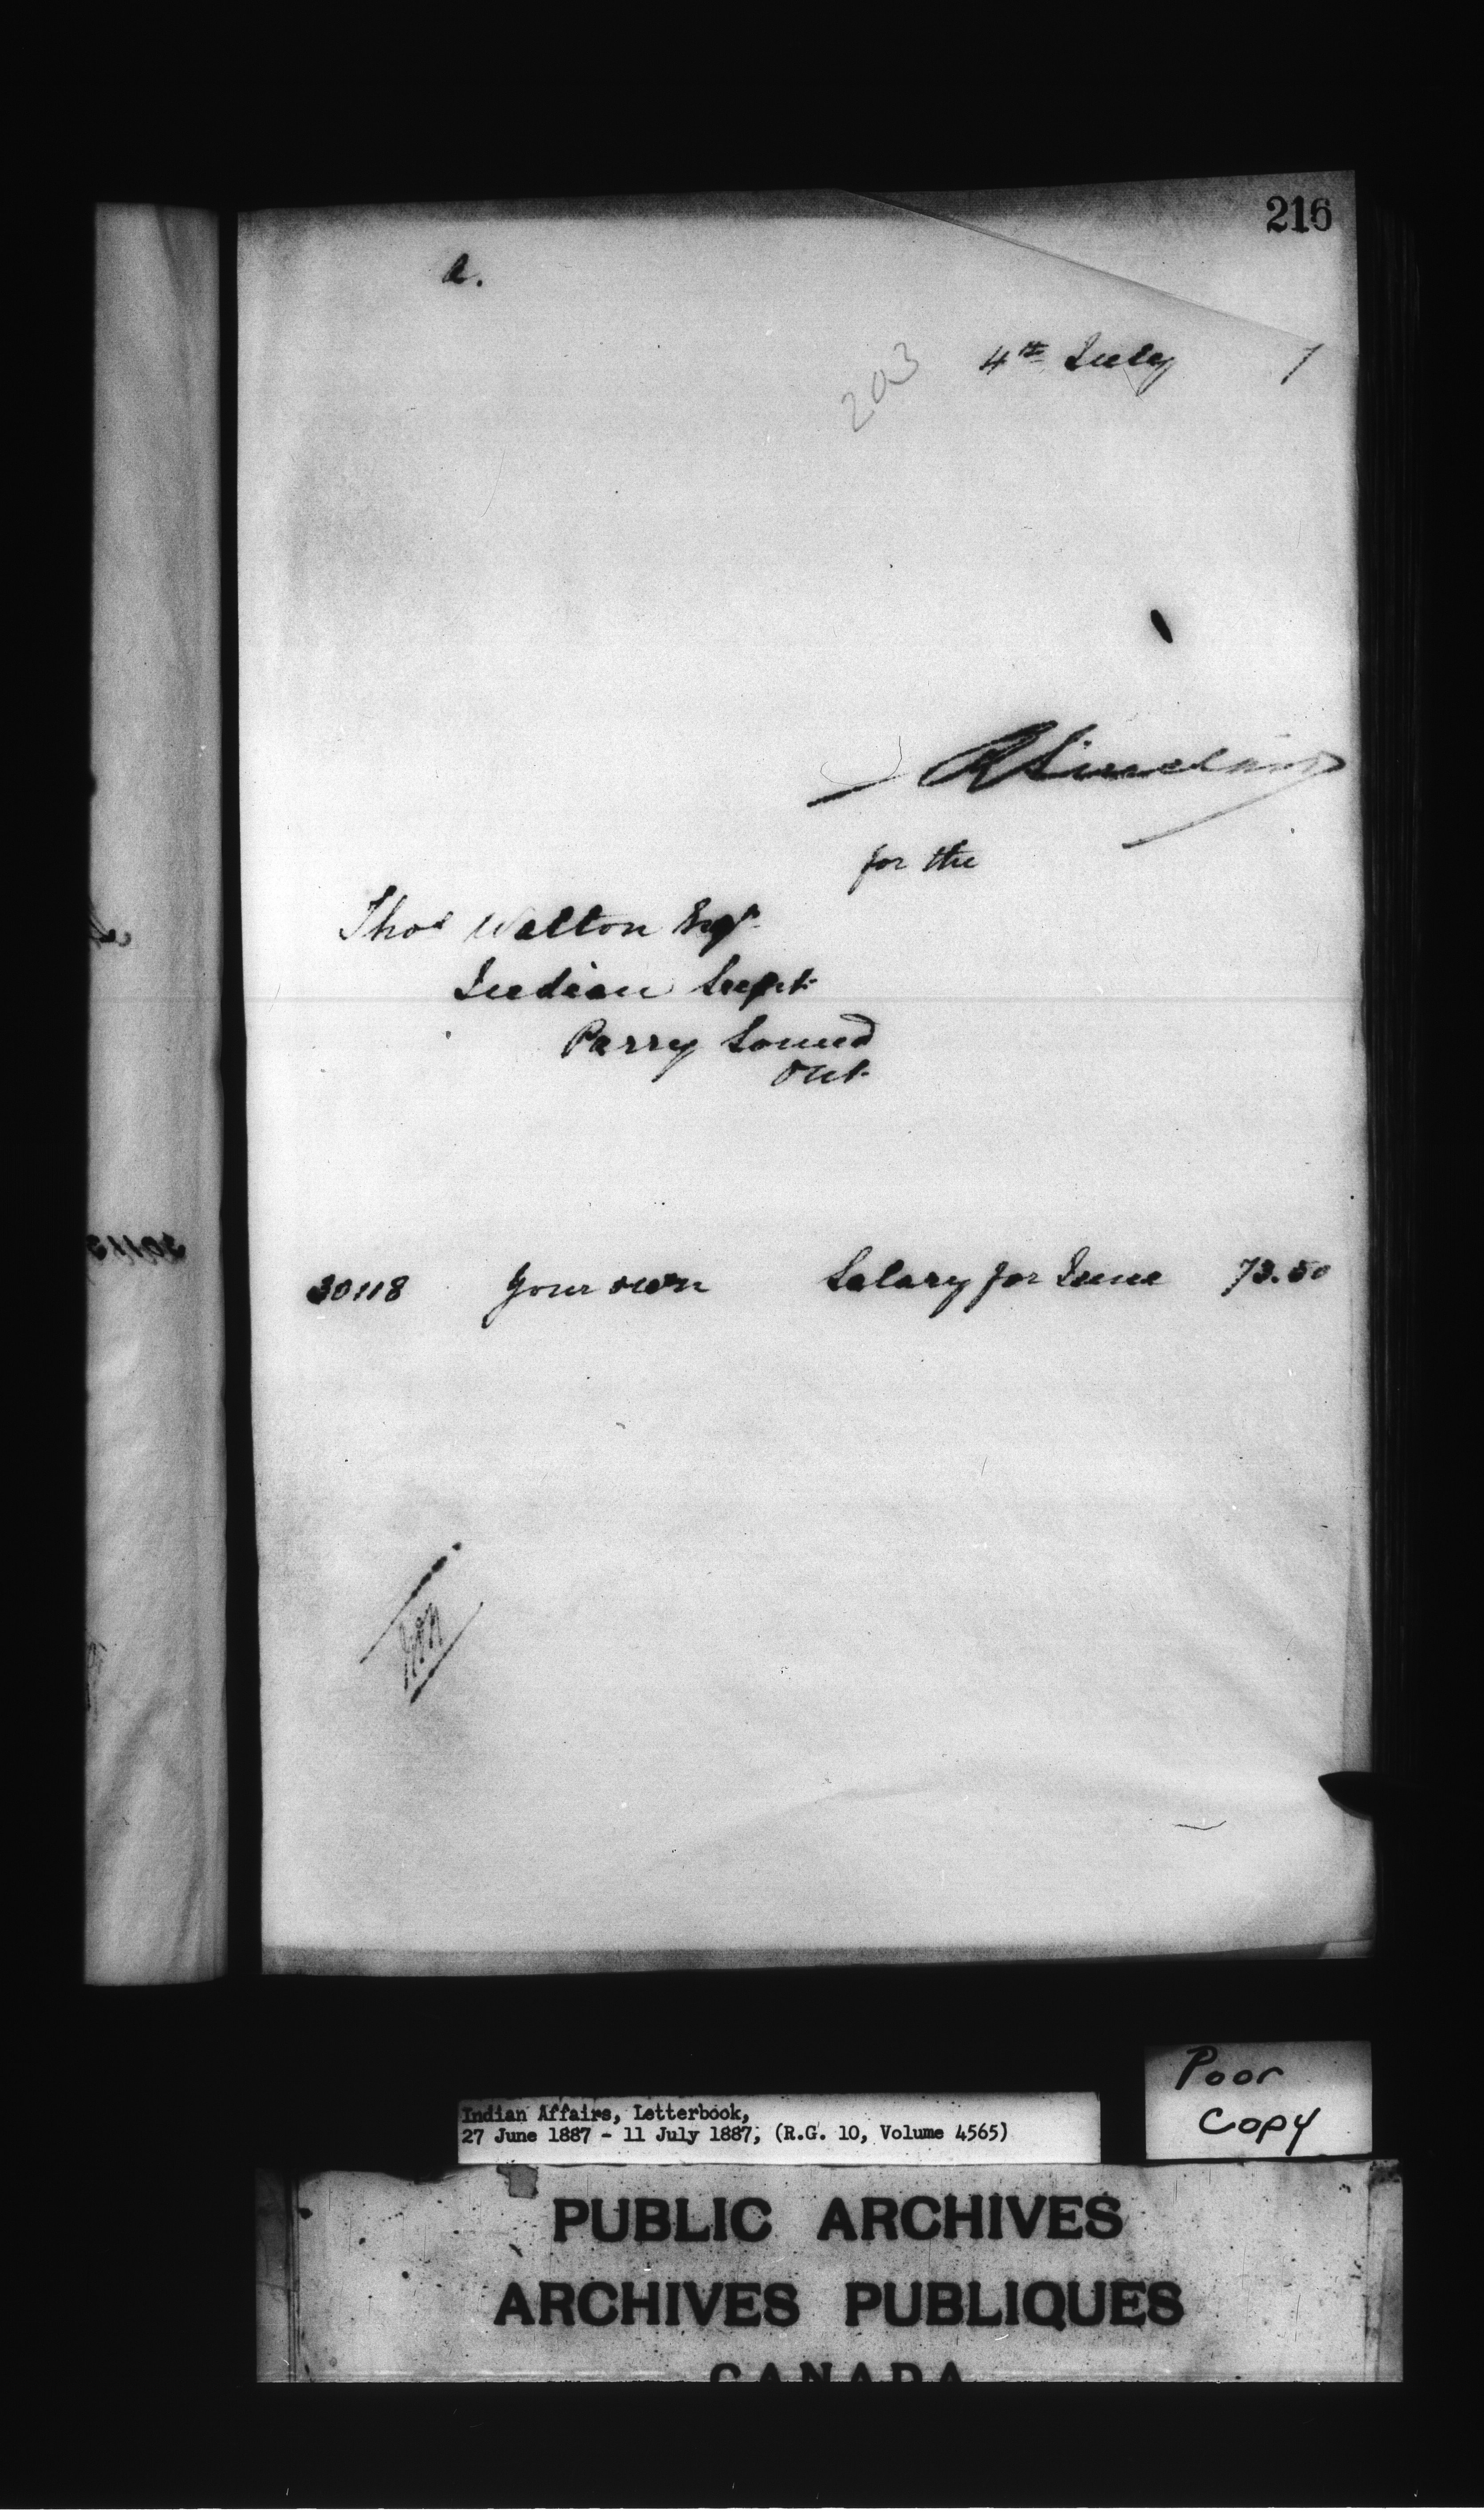 216
a.
4th July 7
203
R Sinclair
for the
Thos Walton Esqr
Indian Supt
Parry Sound
Ont
30118 Your own Salary for June 73.50
Poor
Copy
Indian Affairs, Letterbook,
27 June 1887 - 11 July 1887, (R.G. 10, Volume 4565)
PUBLIC ARCHIVES
ARCHIVES PUBLIQUES
CANADA